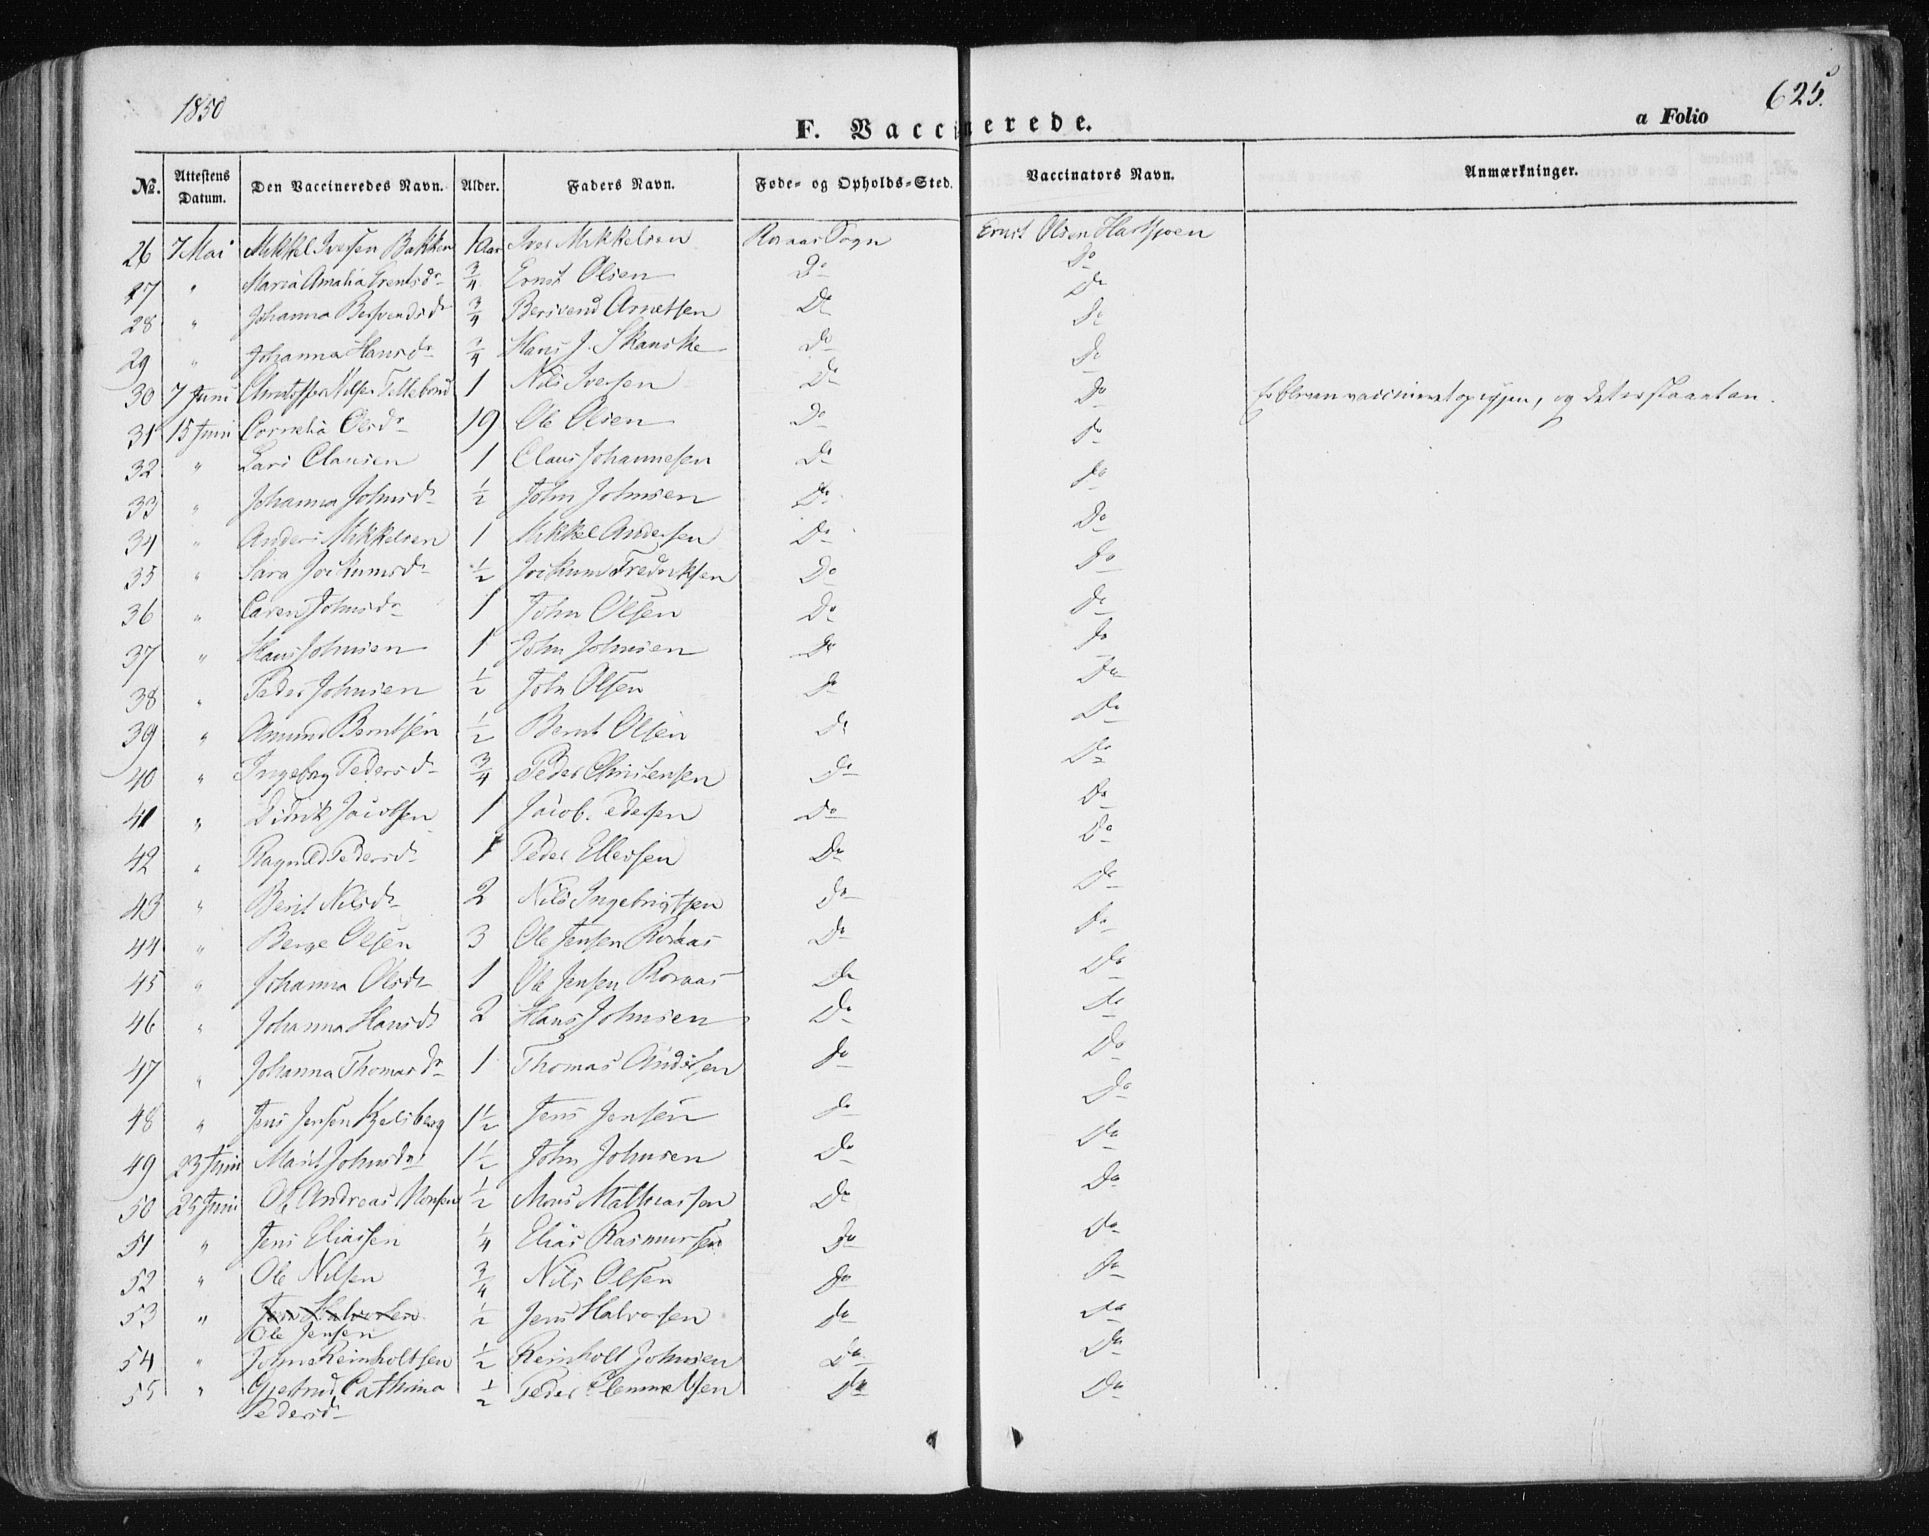 1850
625.
F. Vaccinerede.
a Folio
No. Attestens Datum. Den Vaccineredes Navn. Alder. Faders Navn. Føde- og Opholds-Sted. Vaccinators Navn. Anmærkninger.
26 7 Mai Mikkel Iversen Bakken 1 Aar Iver Mikkelsen Roraas Sogn Ernst Olsen
27 " Maria Amalia Ernstsdr 3/4 Ernst Olsen Do Do
28 " Johanna 3/4 Berivend Arnetsen Do Do
29 " Johanna Hansdr 3/4 Hans J. Skanske Do Do
30 7 Juni Nilsen 1 Nils Iversen Do Do
31 15 Juni Cornelia Olsdr 19 Ole Olsen Do Do vaccineret op igjen, og det
32 " Lars Clausen 1 Claus Johannesen Do Do
33 " Johanna Johnsdr 1/2 John Johnsen Do Do
34 " Anders Mikkelsen 1 Mikkel Andersen Do Do
35 " Sara Jockumsdr 1/2 Jockum Fredriksen Do Do
36 " Caren Johnsdr 1 John Olsen Do Do
37 " Hans Johnsen 1 John Johnsen Do Do
38 " Peder Johnsen 1/2 John Olsen Do Do
39 " Amund Berntsen 1/2 Bernt Olsen Do Do
40 " Ingeborg Pedersdr 3/4 Peder Christensen Do Do
41 " Didrik Jacobsen 1 Jacob Pedersen Do Do
42 " Ragnild Pedersdr 1 Peder Ellersen Do Do
43 " Berit Nilsdr 2 Nils Ingebrigtsen Do Do
44 " Berge Olsen 3 Ole Jensen Roraas Do Do
45 " Johanna Olsdr 1 Ole Jensen Roraas Do Do
46 " Johanna Hansdr 2 Hans Johnsen Do Do
47 " Johanna Thomasdr 1 Thomas Andersen Do Do
48 " Jens Jensen Kjelsberg 1 1/2 Jens Jensen Do Do
49 23 Juni Marit Johnsdr 1 1/2 John Johnsen Do Do
50 25 Juni Ole Andreas Monsen 1/2 Mons Mathiassen Do Do
51 " Jens Eliassen 1/4 Elias Rasmussen Do Do
52 " Ole Nilsen 3/4 Nils Olsen Do Do
53 " Jens Halvorsen 1/2 Jens Halvorsen Do Do
Ole Jensen
54 " John Reinholtsen 1/2 Reinholt Johnsen Do Do
55 " Gjertrud Cathrina 1/2 Peder Clemmetsen Do Do
Pedersdr